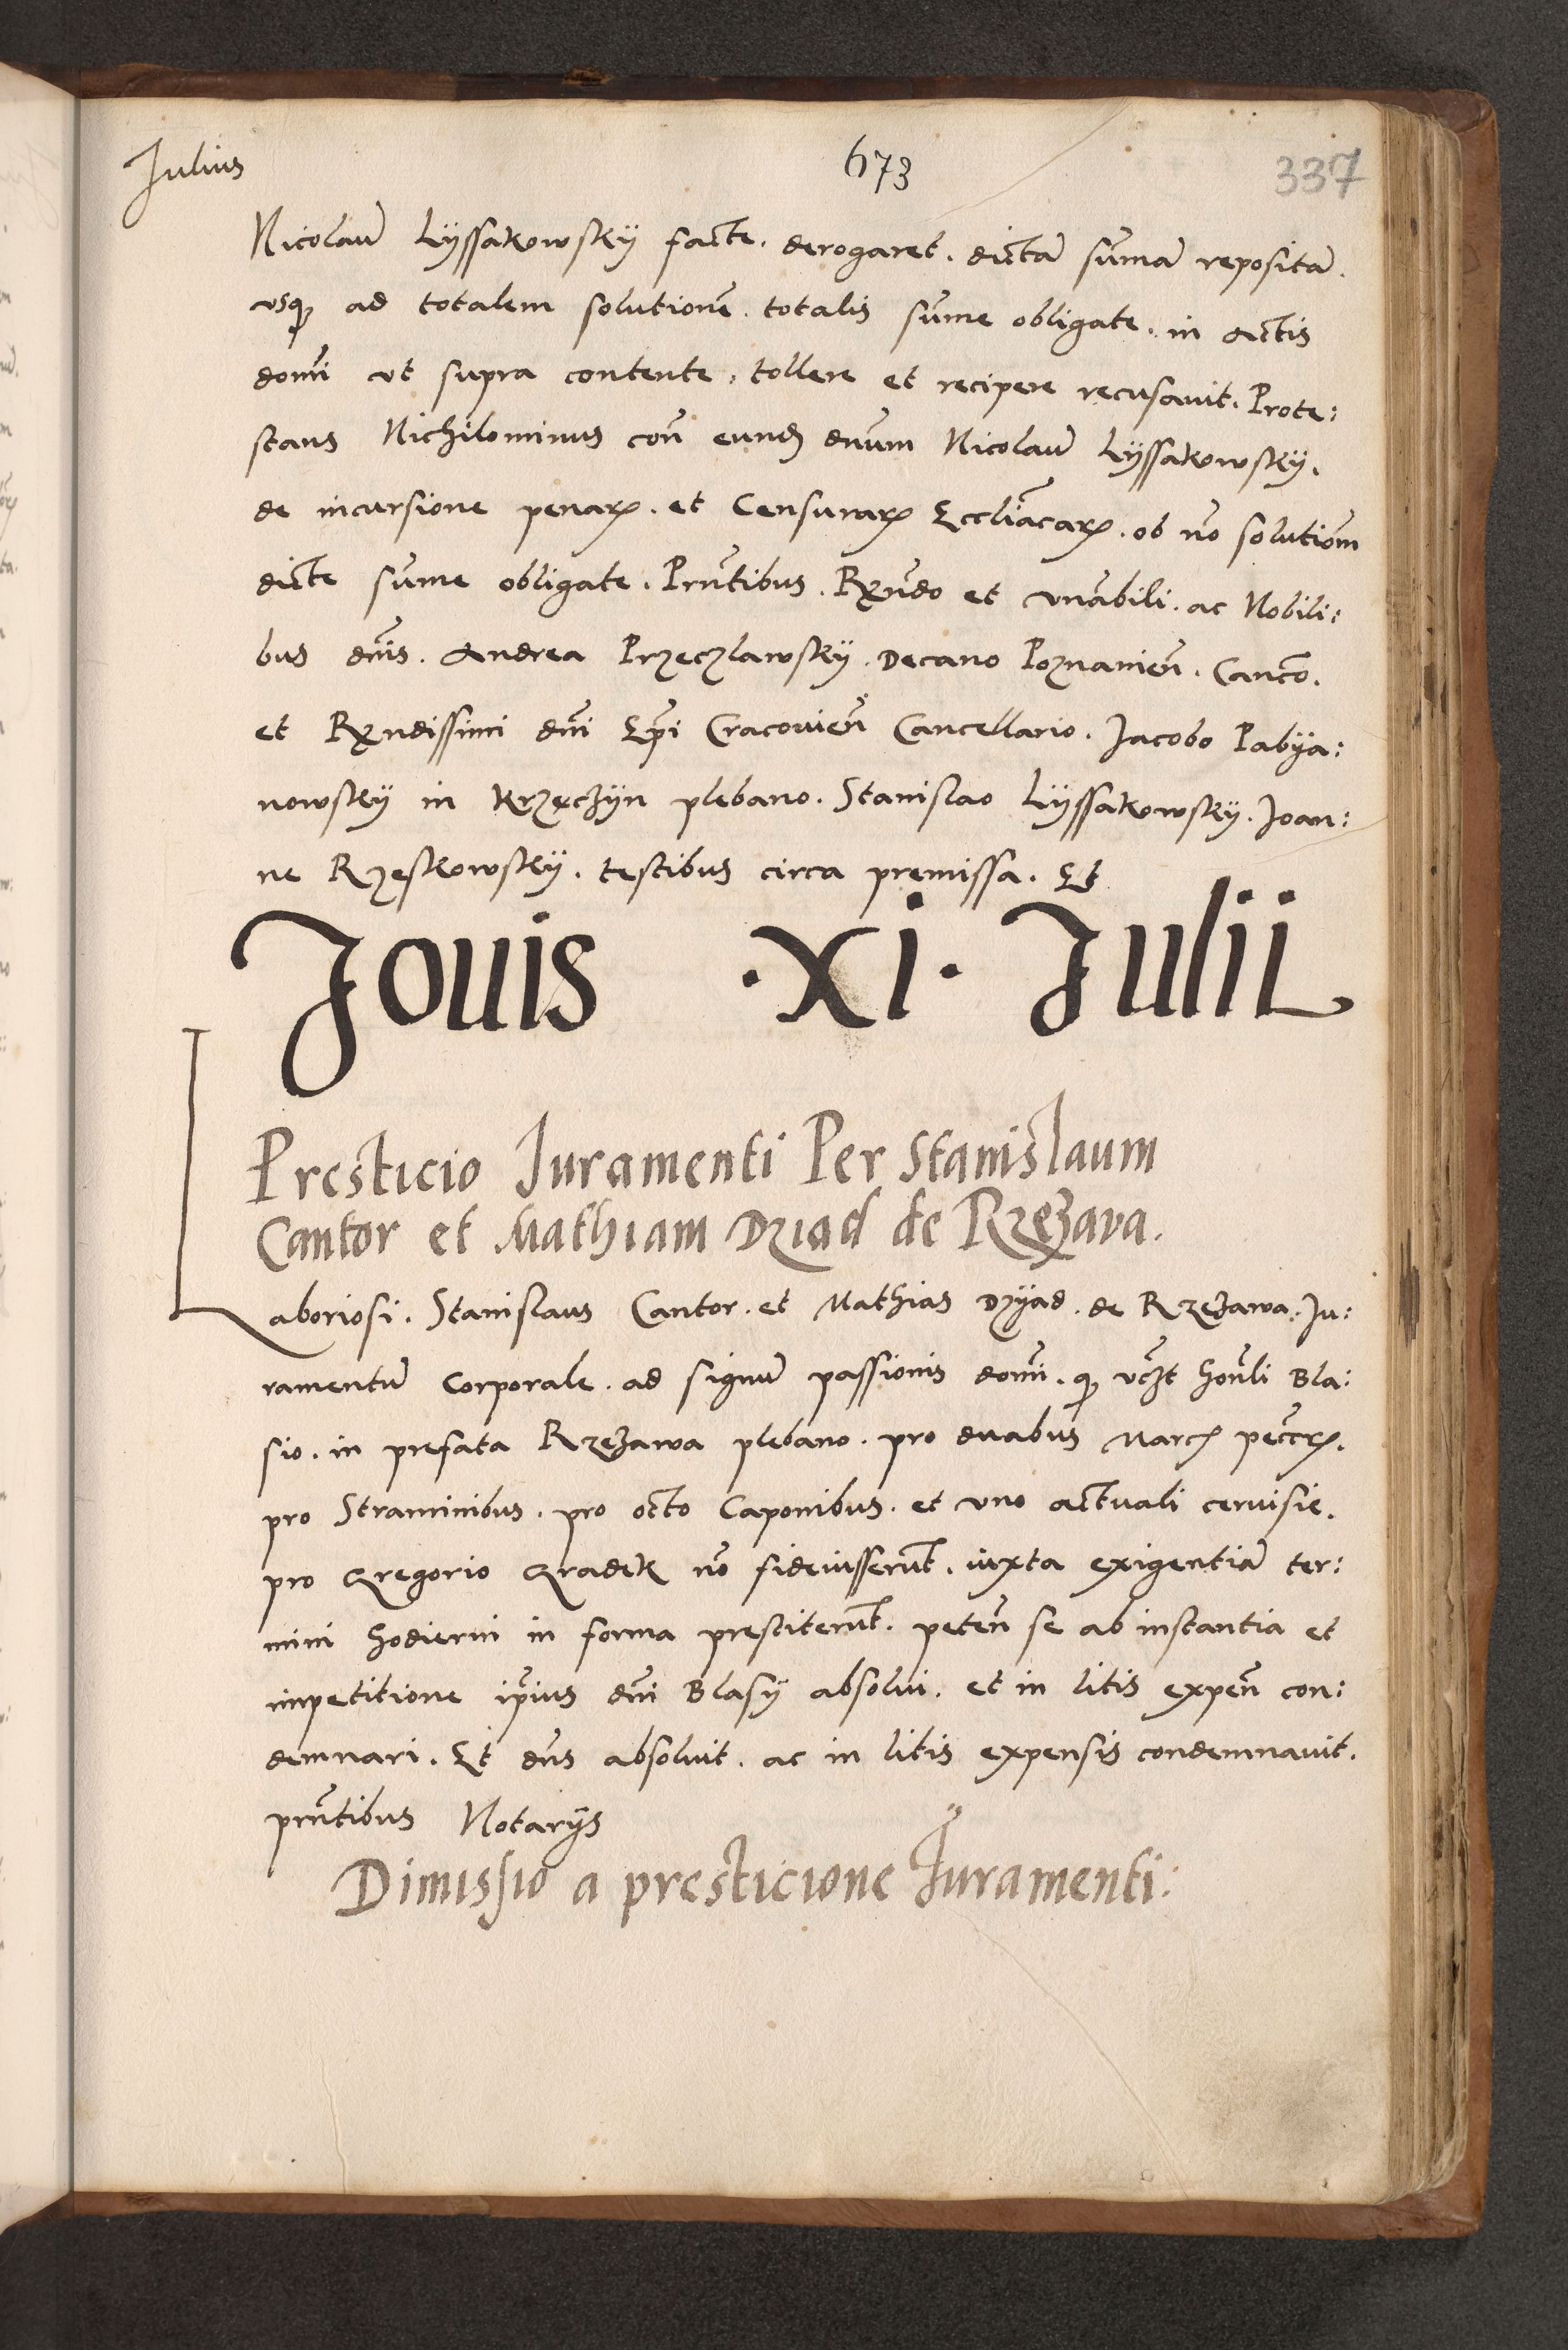 Julius
673
337
Nicolaū Lÿssakowskÿ facte . derogaret . dictā sūmā repositā .
vsqȝ ad totalem solutionē . totalis sūme obligate . in Actis
domī vt supra contente . tollere et recipere recusauit . Prote:
stans Nichilominus con̄ eundē dnūm Nicolaū Lÿssakowskÿ .
de incursione penarꝝ . et Censurarꝝ Eccliācarꝝ . ob nō solutiōm
dicte sūme obligate . Prn̄tibus . Rꝛn̄do et vn̄abili . ac Nobili:
bus dn̄is . Andrea Przeczlawskÿ . Decano Poznanien̄ . Canco̅ .
et Rꝛndissimi dn̄i Ep̄i Cracouien̄ Cancellario . Jacobo Pabÿa:
nowskÿ in Krzęchÿn plebano . Stanislao Lÿssakowskÿ . Joan:
ne Rzeskowskÿ . testibus circa premissa . Et
Jouis .XI. Julii
Presticio Juramenti Per Stanislaum
Cantor et Mathiam Dziad de Rzęzava .
Laboriosi . Stanislaus Cantor . et Mathias Dzÿad . de Rzęzawa . Ju:
ramentū Corporale . ad signū passionis domī . qȝ vc̄zt hon̄li Bla:
sio . in prefata Rzęzawa plebano . pro duabus Marcꝭ pec̄crꝝ .
pro Straminibus . pro octo Caponibus . et vno actuali ceruisie .
pro Gregorio Gradek nō fideiusserūt . iuxta exigentiā ter:
mini hodierni in forma prestiterūt . peten̄ se ab instantia et
impetitione ip̄ius dn̄i Blasÿ absolui . et in litis expen̄ con:
demnari . Et dn̄s absoluit . ac in litis expensis condemnauit .
prn̄tibus Notarÿs
Dimissio a presticione Juramenti :